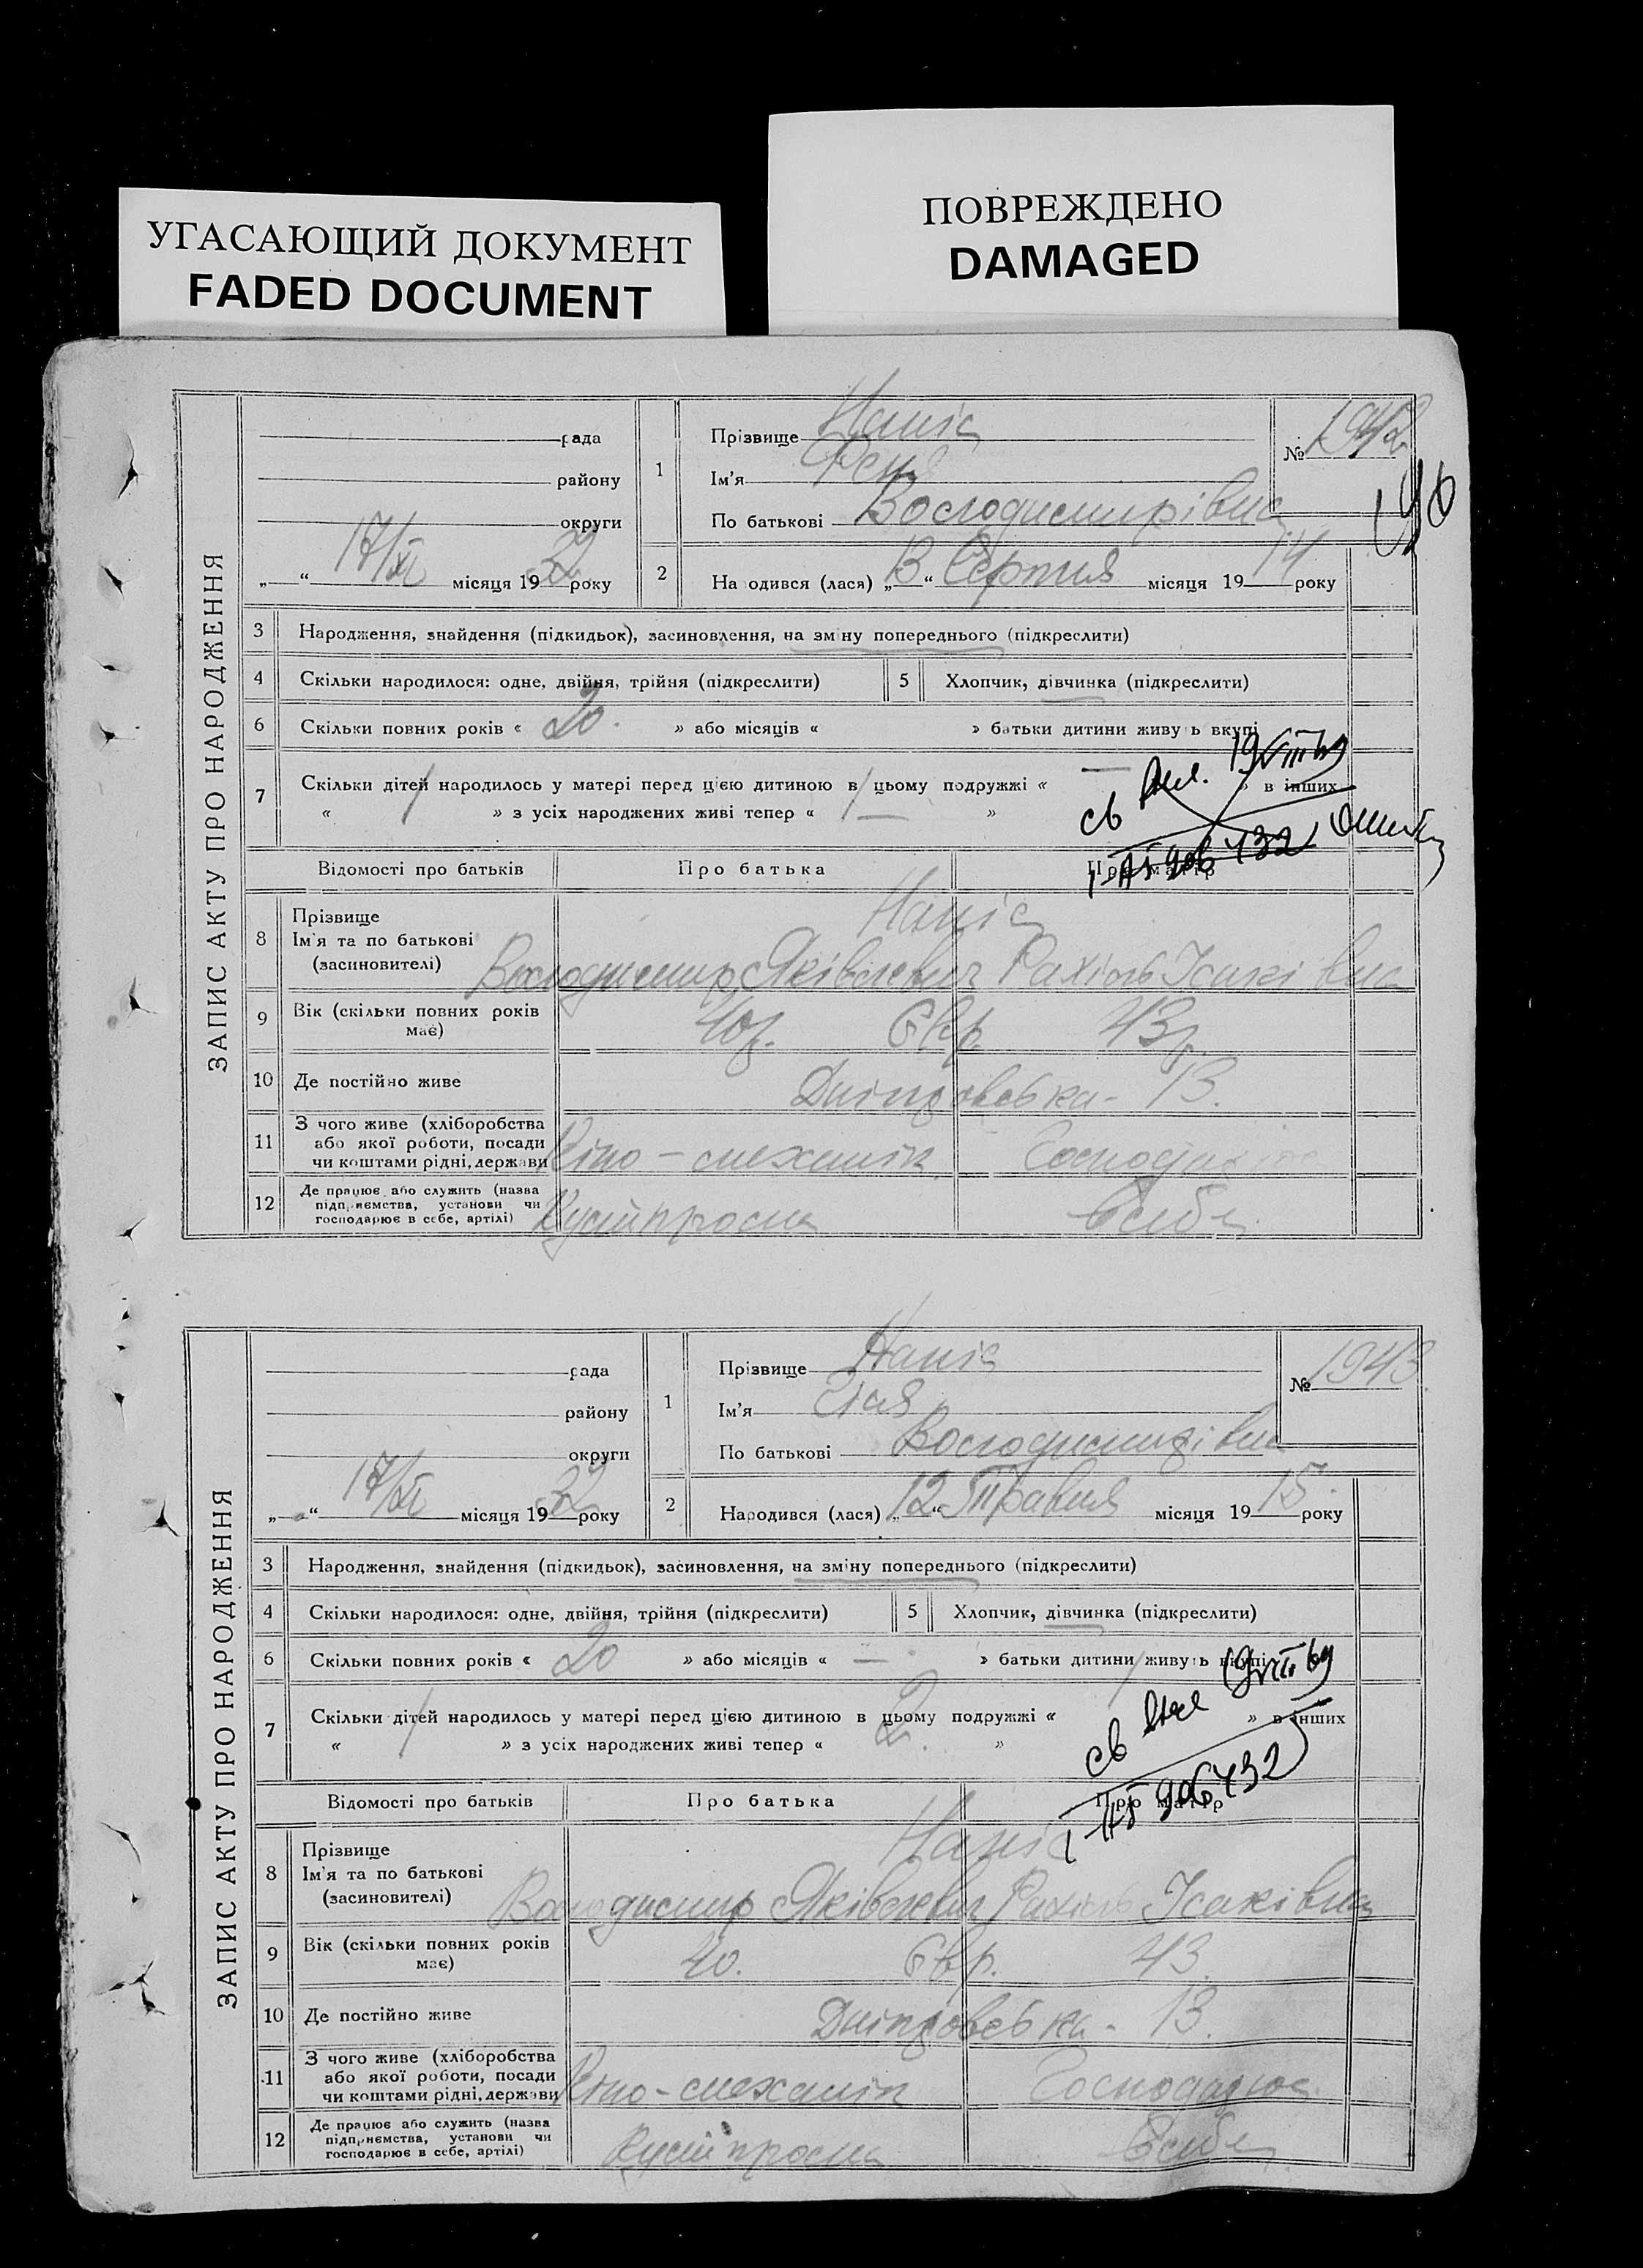 УГАСАЮЩИЙ ДОКУМЕНТ
FADED DOCUMENT
ПОВРЕЖДЕНО
DAMAGED
ЗАПИС АКТУ ПРО НАРОДЖЕННЯ
рада
району
округи
„ “ 17/XI місяця 1932 року
1
Прізвище
Ім'я
По батькові Володимирівна
№ 1942
2 На одився (лася) „13“ Серпня місяця 1914 року
3 Народження, знайдення (підкидьок), засиновлення, на зміну попереднього (підкреслити)
4 Скільки народилося: одне, двійня, трійня (підкреслити) 5 Хлопчик, дівчинка (підкреслити)
6 Скільки повних років « 20. » або місяців « » батьки дитини живу ь вкупі
7 Скільки дітей народилось у матері перед цією дитиною в цьому подружжі « — » в інших
« » з усіх народжених живі тепер « — »
Відомості про батьків Про батька Про матір
8 Прізвище
Ім'я та по батькові
(засиновителі)
Володимир Яківлевич Рахіль Ісаківна
9 Вік (скільки повних років має) 40р. Євр. 43р.
10 Де постійно живе Дніпровська - 13.
11 З чого живе (хліборобства або якої роботи, посади чи коштами рідні, держави Кіно-механік
12 Де працює або служить (назва підприємства, установи чи господарює в себе, артілі) в себе
ЗАПИС АКТУ ПРО НАРОДЖЕННЯ
рада
району
округи
„ “ 17/XI місяця 1932 року
1
Прізвище
Ім'я
По батькові Володимирівна
№ 1943.
2 Народився (лася) „12“ Травня місяця 1915. року
3 Народження, знайдення (підкидьок), засиновлення, на зміну попереднього (підкреслити)
4 Скільки народилося: одне, двійня, трійня (підкреслити) 5 Хлопчик, дівчинка (підкреслити)
6 Скільки повних років « 20 » або місяців « — » батьки дитини живуть вкупі
7 Скільки дітей народилось у матері перед цією дитиною в цьому подружжі « » в інших
« » з усіх народжених живі тепер « 2. »
Відомості про батьків Про батька Про матір
8 Прізвище
Ім'я та по батькові
(засиновителі)
Володимир Яківлевич Рахіль Ісаківна
9 Вік (скільки повних років має) 40. Євр. 43.
10 Де постійно живе Дніпровська - 13.
11 З чого живе (хліборобства або якої роботи, посади чи коштами рідні, держави Кіно-механік Господарює
12 Де працює або служить (назва підприємства, установи чи господарює в себе, артілі) в себе